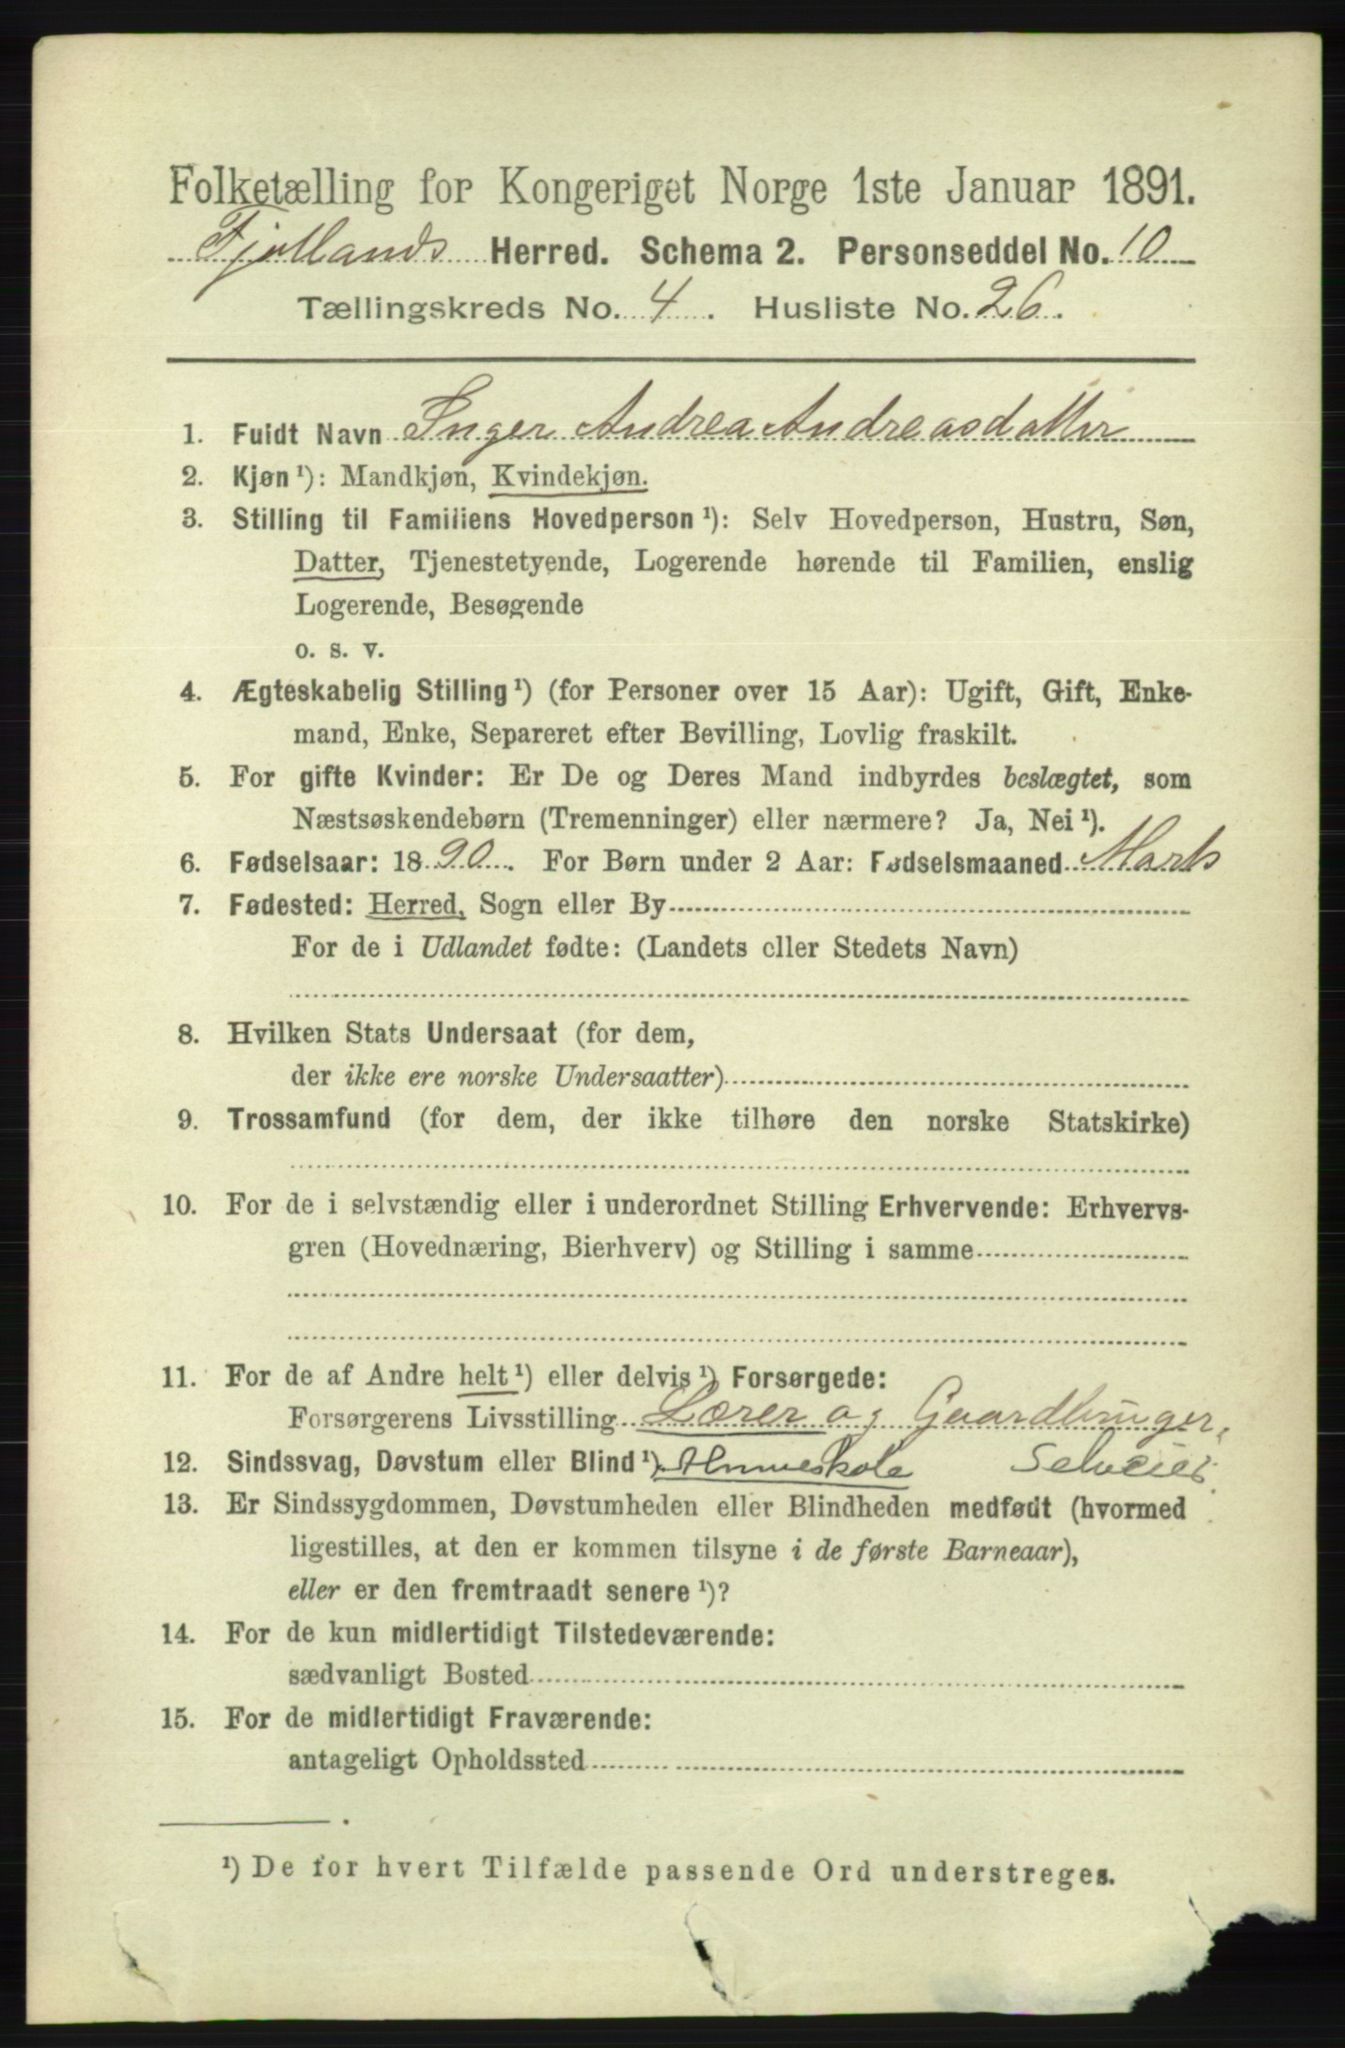 Folketælling for Kongeriget Norge 1ste Januar 1891.
Fjotlands Herred. Schema 2. Personseddel No. 10
Tællingskreds No. 4. Husliste No. 26.
1. Fuldt Navn Inger Andrea Andreasdatter
2. Kjøn ¹): Mandkjøn, Kvindekjøn.
3. Stilling til Familiens Hovedperson ¹): Selv Hovedperson, Hustru, Søn,
Datter, Tjenestetyende, Logerende hørende til Familien, enslig
Logerende, Besøgende
o. s. v.
4. Ægteskabelig Stilling ¹) (for Personer over 15 Aar): Ugift, Gift, Enke-
mand, Enke, Separeret efter Bevilling, Lovlig fraskilt.
5. For gifte Kvinder: Er De og Deres Mand indbyrdes beslægtet, som
Næstsøskendebørn (Tremenninger) eller nærmere? Ja, Nei ¹).
6. Fødselsaar: 1890. For Børn under 2 Aar: Fødselsmaaned Marts
7. Fødested: Herred, Sogn eller By
For de i Udlandet fødte: (Landets eller Stedets Navn)
8. Hvilken Stats Undersaat (for dem,
der ikke ere norske Undersaatter)
9. Trossamfund (for dem, der ikke tilhøre den norske Statskirke)
10. For de i selvstændig eller i underordnet Stilling Erhvervende: Erhvervs-
gren (Hovednæring, Bierhverv) og Stilling i samme
11. For de af Andre helt ¹) eller delvis ¹) Forsørgede:
Forsørgerens Livsstilling Lærer og Gaardbruger,
12. Sindssvag, Døvstum eller Blind ¹). Almueskole Selveier
13. Er Sindssygdommen, Døvstumheden eller Blindheden medfødt (hvormed
ligestilles, at den er kommen tilsyne i de første Barneaar),
eller er den fremtraadt senere ¹)?
14. For de kun midlertidigt Tilstedeværende:
sædvanligt Bosted
15. For de midlertidigt Fraværende:
antageligt Opholdssted
¹) De for hvert Tilfælde passende Ord understreges.